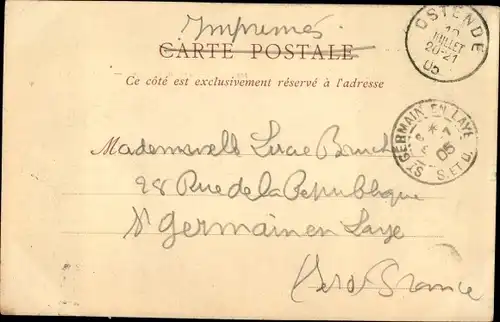 Imprimés
CARTE POSTALE
OSTENDE
10
JUILLET
20-21
05
Ce côté est exclusivement réservé à l'adresse
ST GERMAIN EN LAYE
05
S. ET O.
Mademoiselle Lucie
28 Rue de la République
St Germain en Laye
France